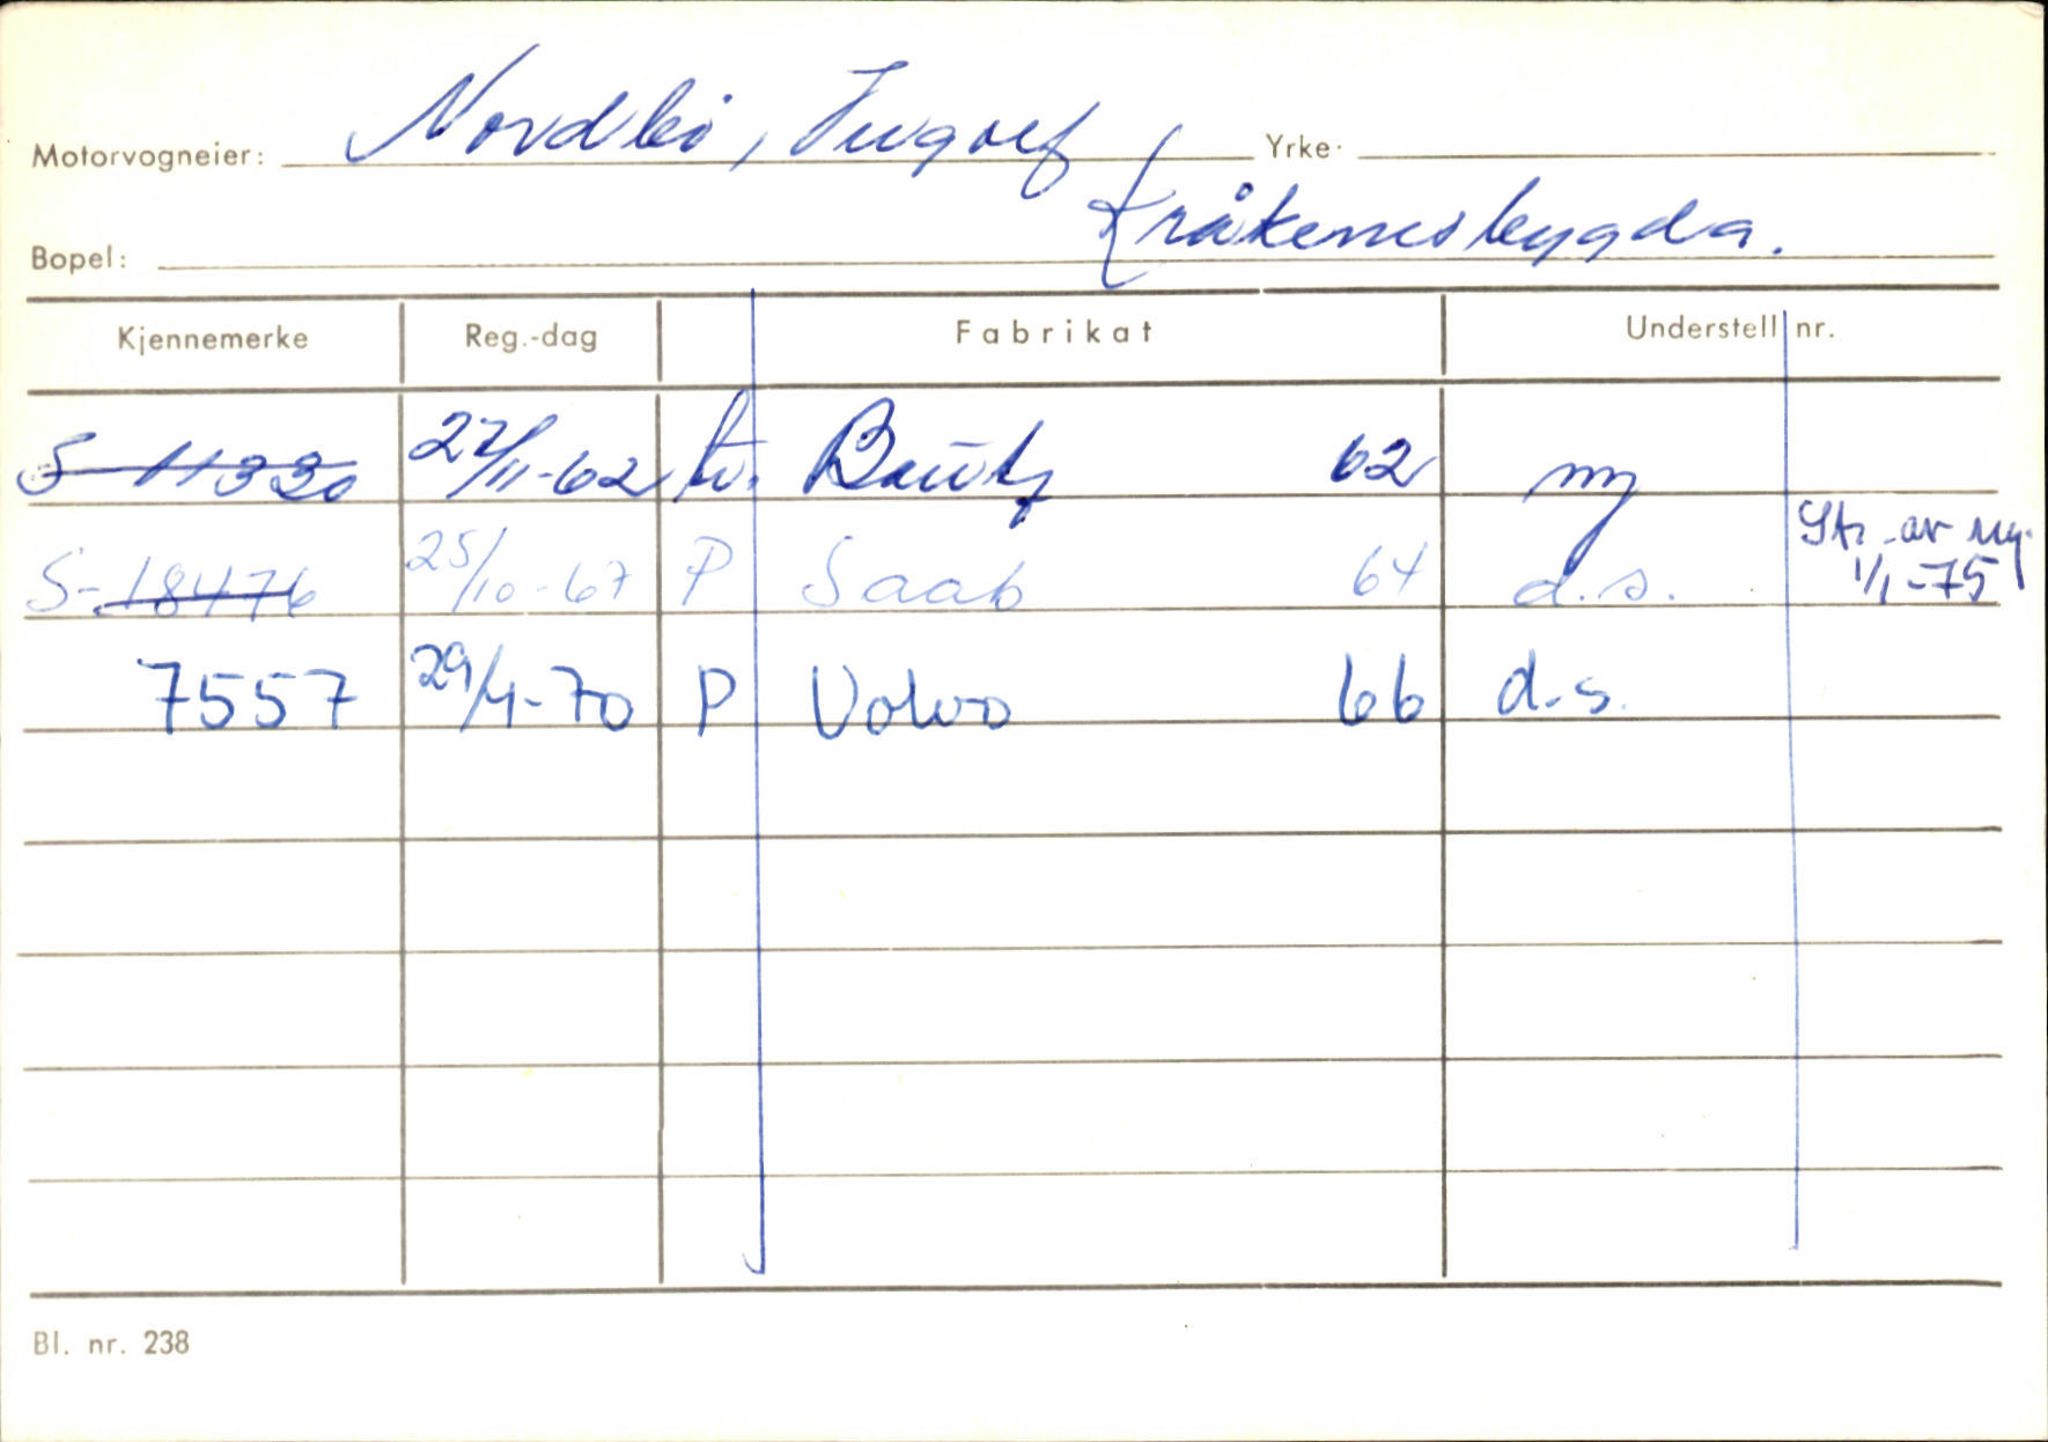 Motorvogneier: Nordbö, Ingolf Yrke:
Bopel: Kråkenesbygda.
Kjennemerke Reg.-dag Fabrikat Understell nr.
S-11330 27/11-62 tr. Bautz 62 ny
S-18476 25/10-67 P Saab 64 d.s. Str. av reg. 1/1-75
7557 29/4-70 P Volvo 66 d.s.
Bl. nr. 238